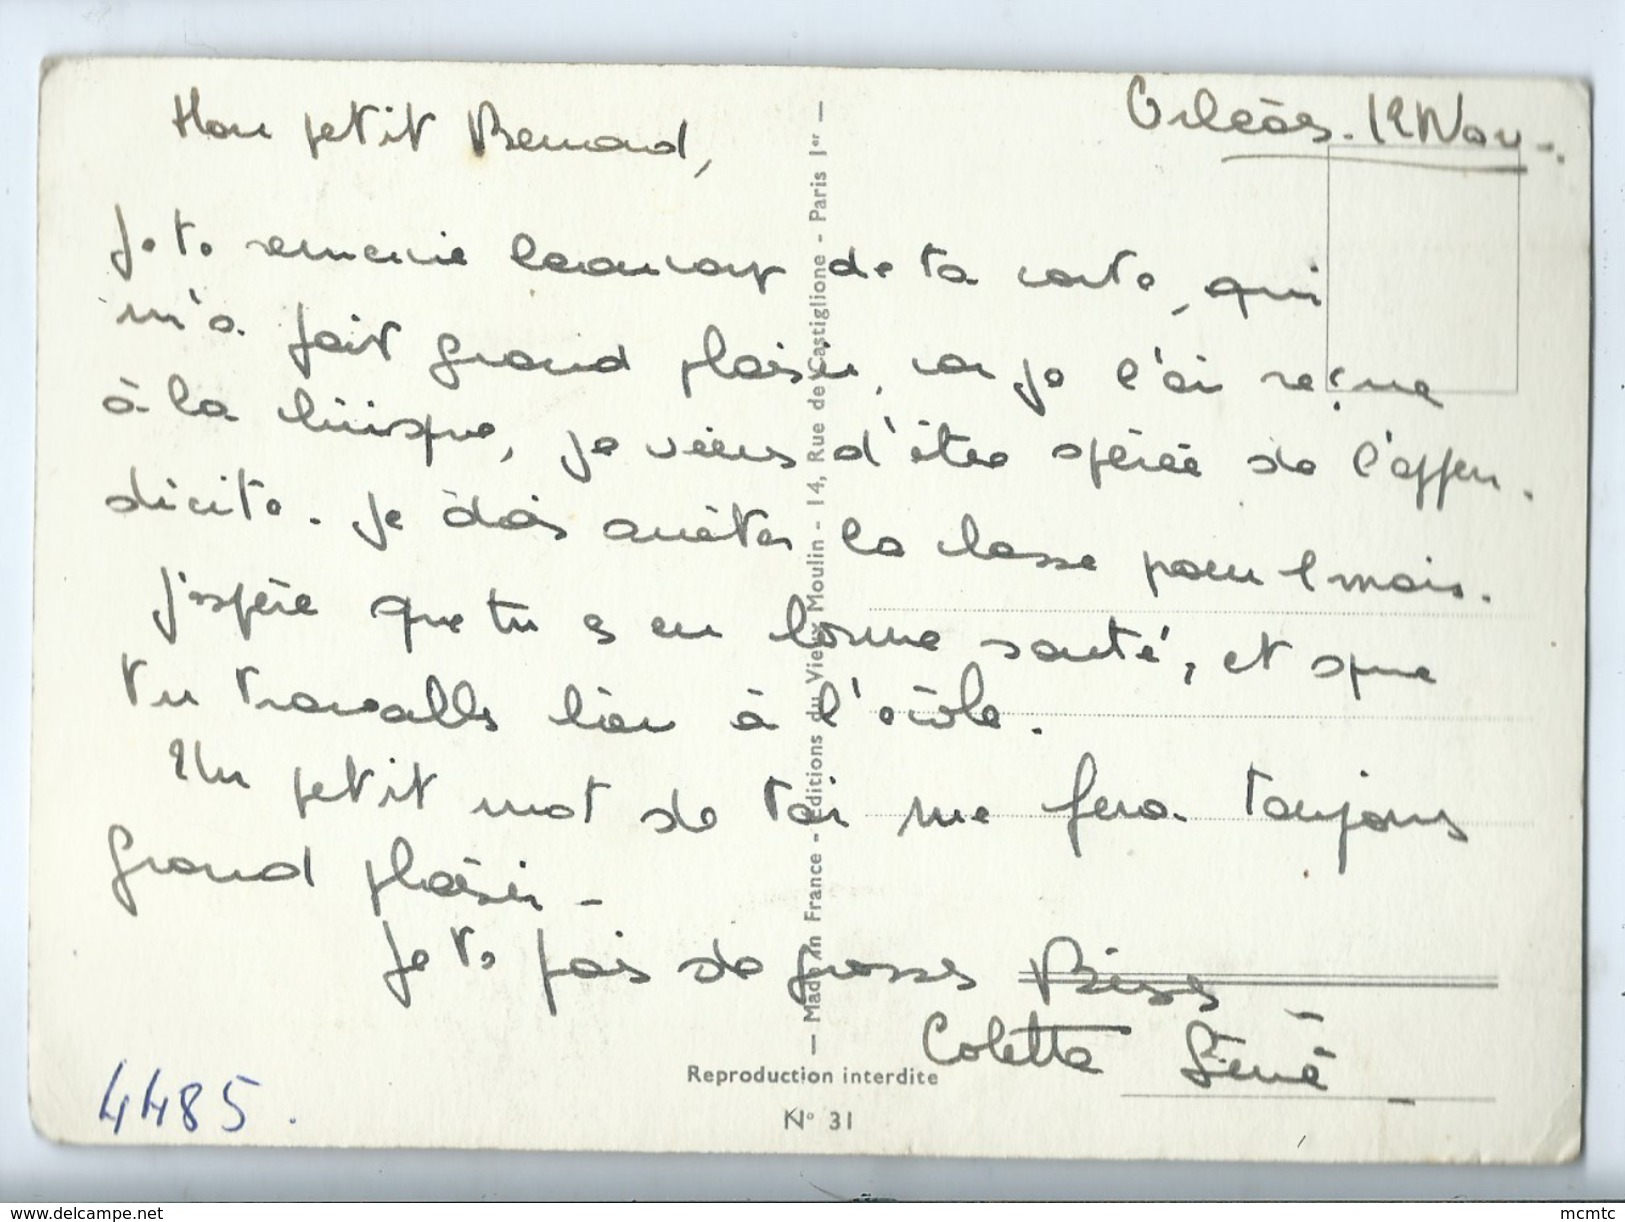 Orléans. 12 Nov -.
Mon petit Bernard,
Je te remercie beaucoup de ta carte, qui
m'a fait grand plaisir, car je l'ai reçue
à la clinique, je viens d'être opérée de l'appen.
dicite. Je dois arrêter la classe pour 1 mois.
J'espère que tu es en bonne santé, et que
tu travailles bien à l'école.
Un petit mot de toi me fera toujours
grand plaisir -
Je te fais de grosses Bises
Colette
4485.
— Made in France - Editions du Vieux Moulin - 14, Rue de Castiglione - Paris 1er —
Reproduction interdite
N° 31
www.delcampe.net
mcmtc